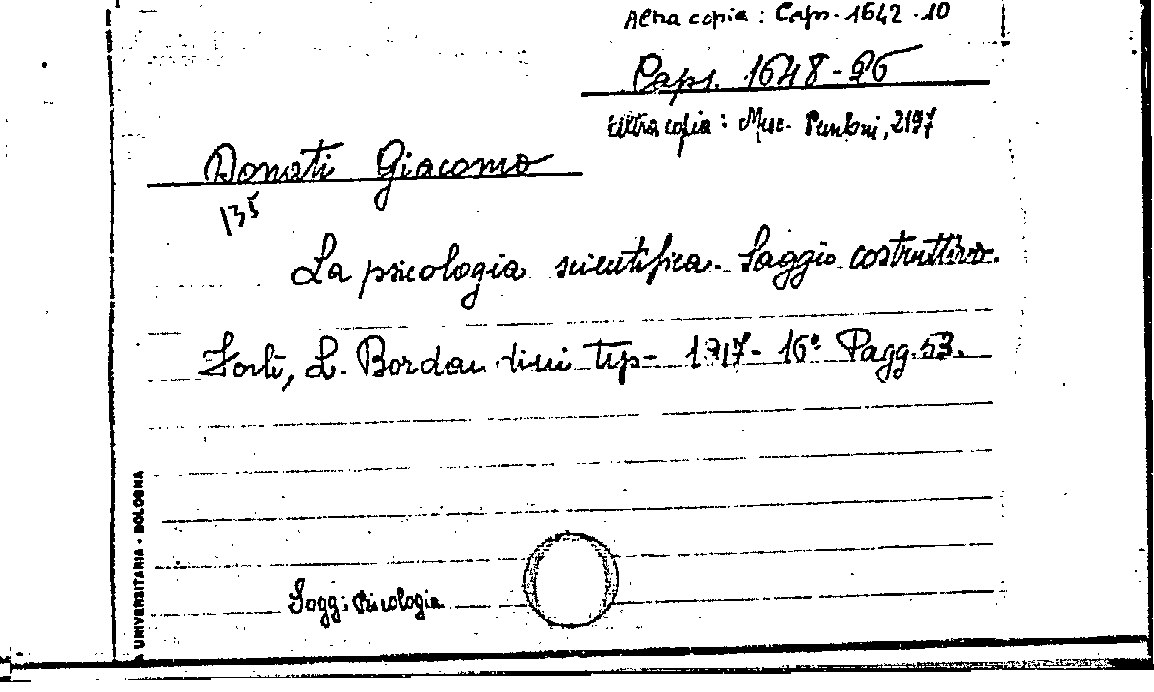 Altra copia: Caps. 1642.10
Caps. 1648-26
Altra copia: Misc. Puntoni, 2197
Donati Giacomo
135
La psicologia scientifica. Saggio costruttivo.
Forlì, L. Bordandini tip- 1917- 16° Pagg. 53.
Sogg: Psicologia
UNIVERSITARIA - BOLOGNA